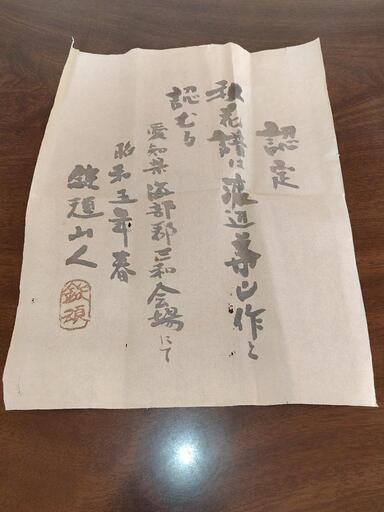 認定
秋花譜は渡辺崋山作と
認むる
愛知県海部郡三和会場にて
昭和五年春
山人